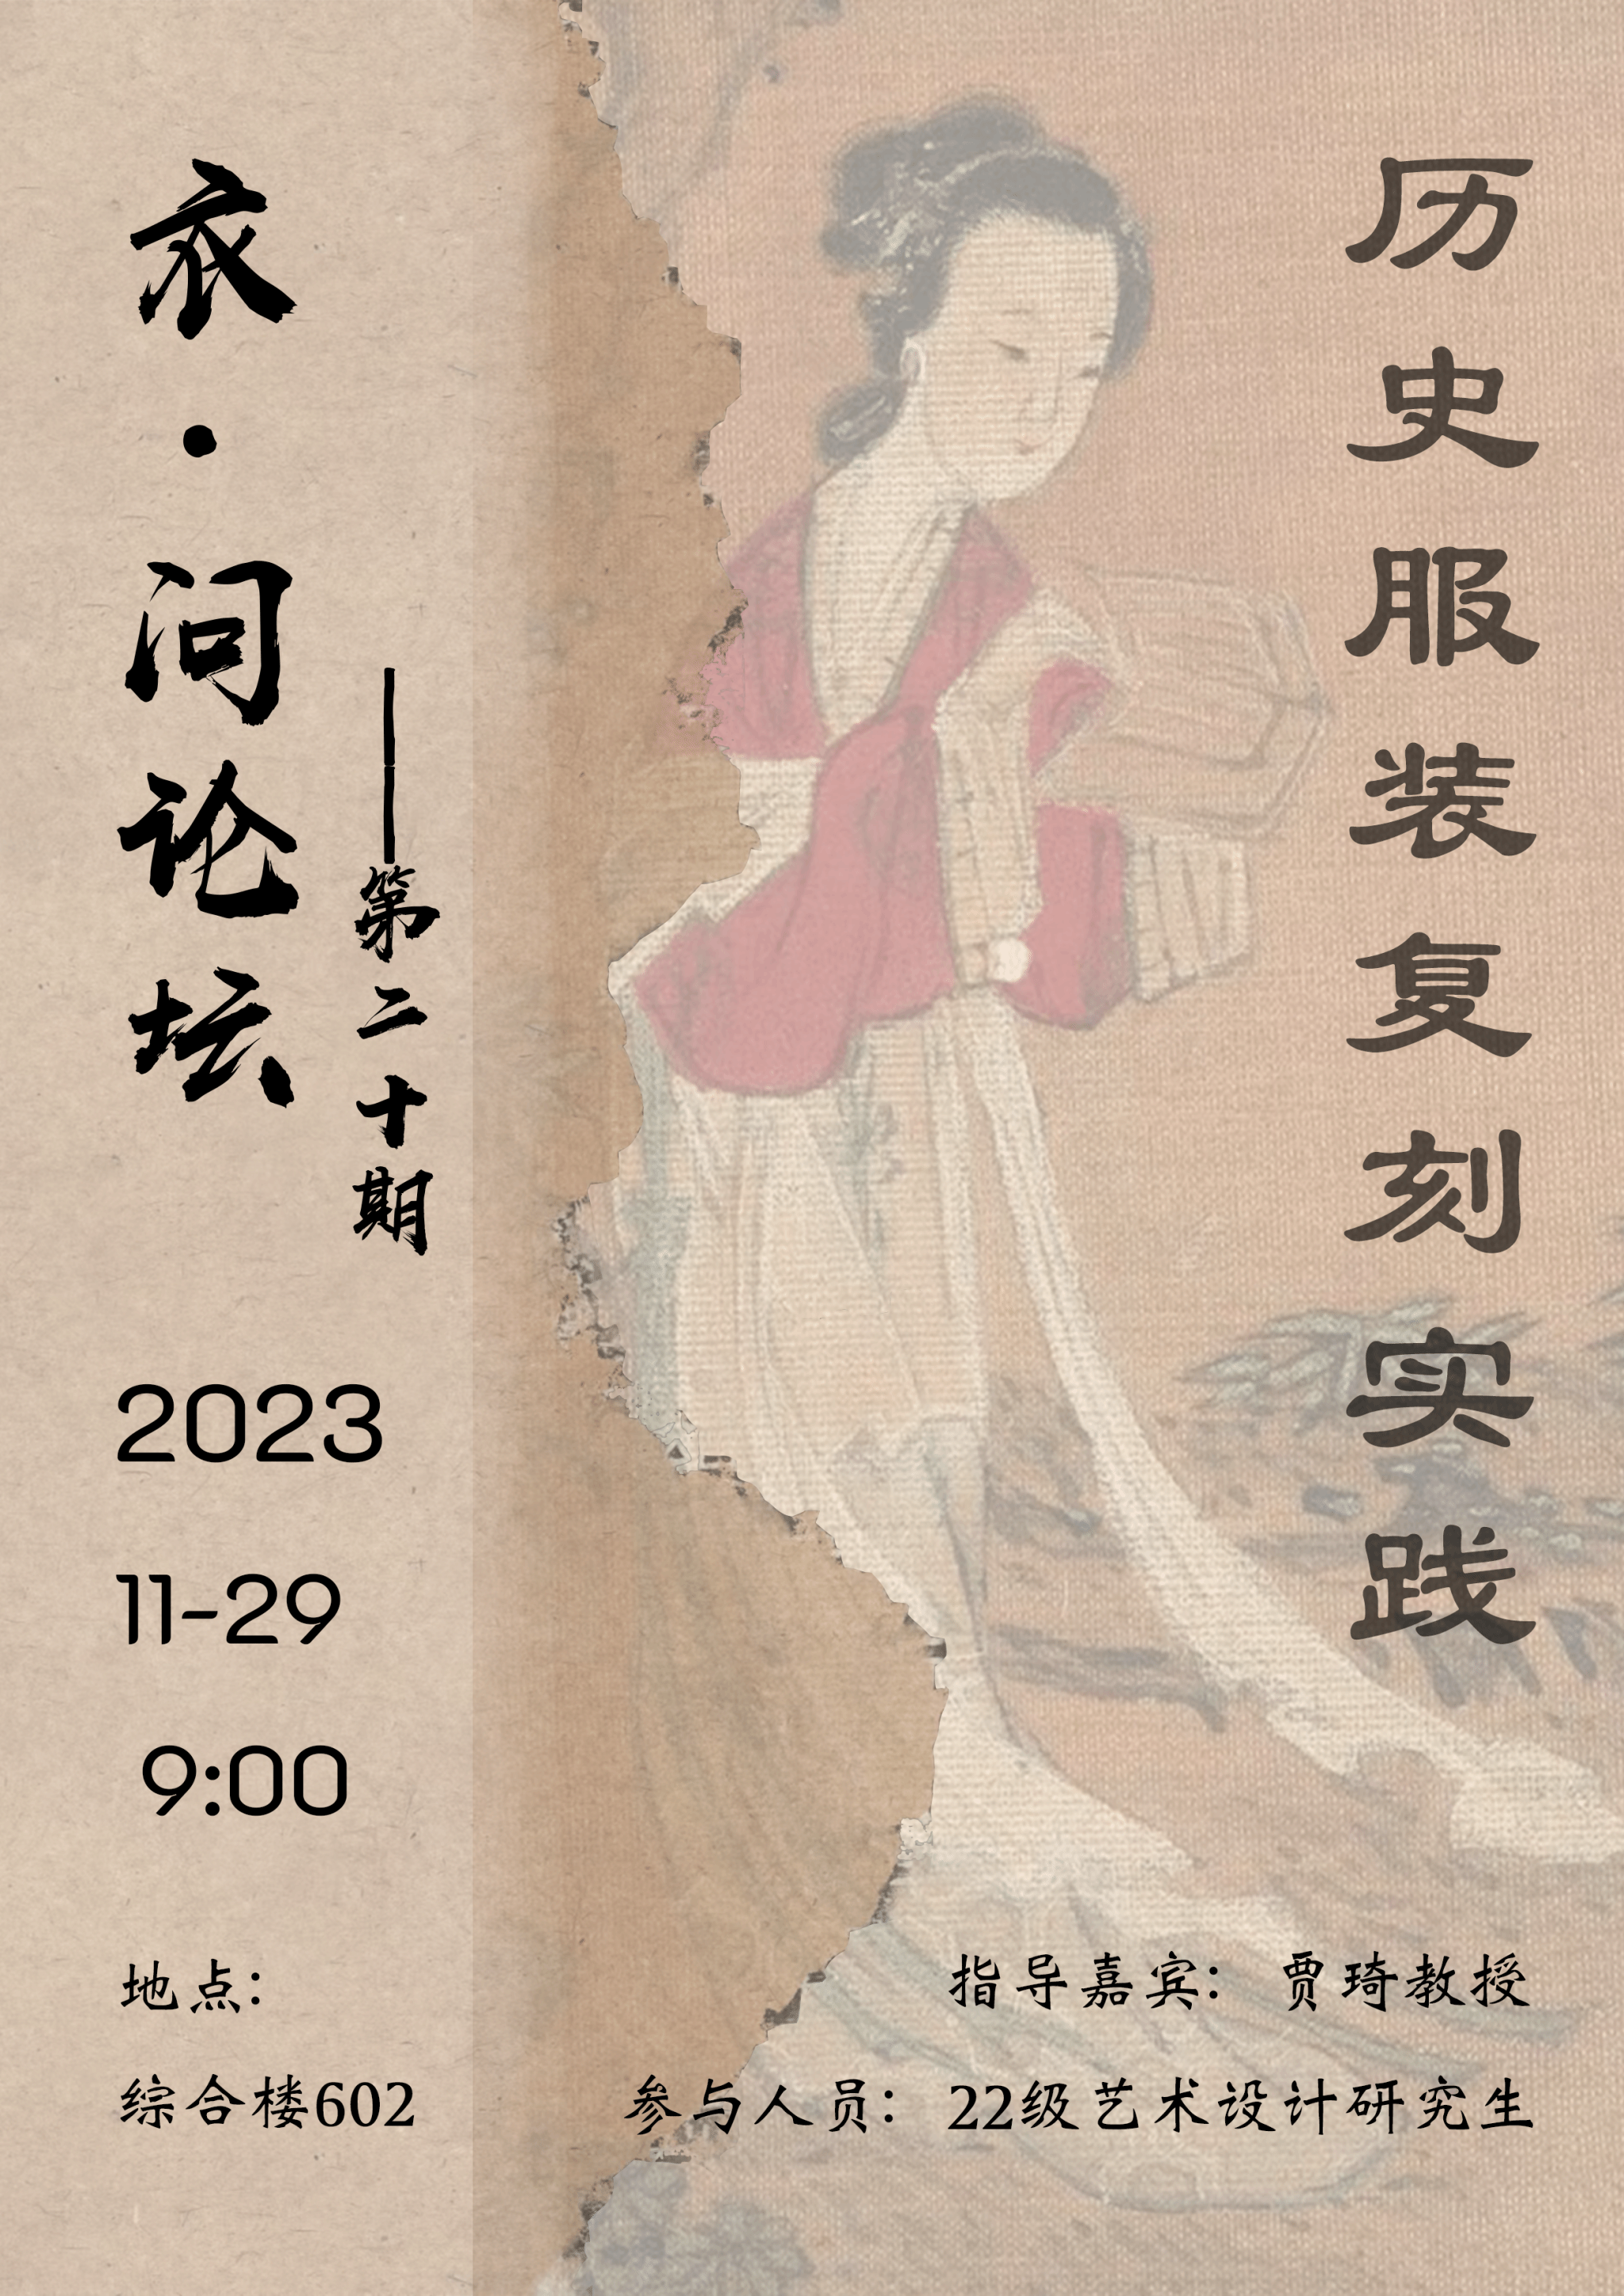 衣·问论坛
——第二十期
历史服装复刻实践
2023
11-29
9:00
地点：
综合楼602
指导嘉宾： 贾琦教授
参与人员： 22级艺术设计研究生